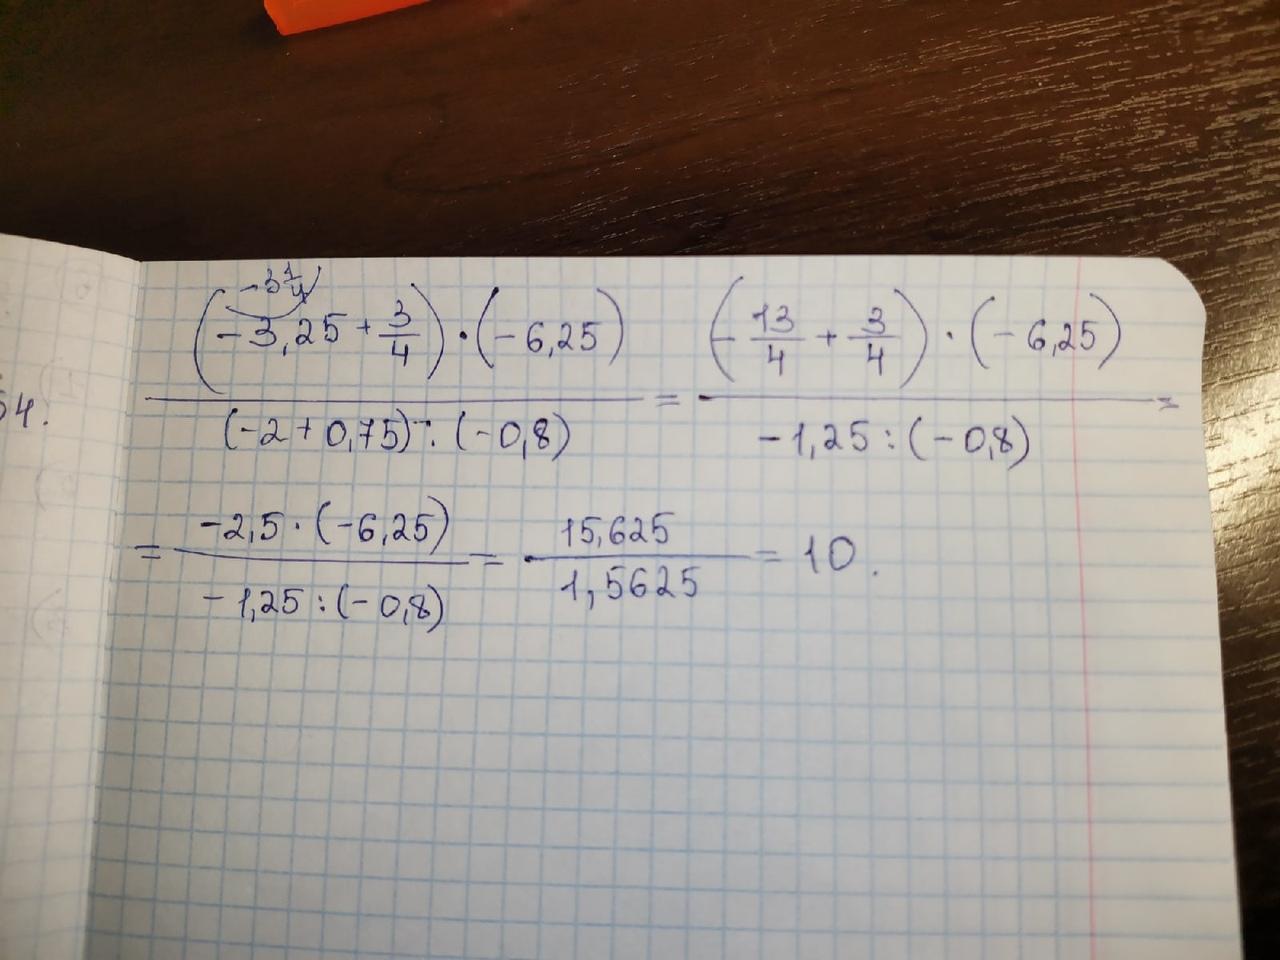 -3 1/4
(-3,25 + 3/4) · (-6,25) / (-2 + 0,75) : (-0,8) = (-13/4 + 3/4) · (-6,25) / -1,25 : (-0,8) =
54.
= -2,5 · (-6,25) / -1,25 : (-0,8) = 15,625 / 1,5625 = 10.